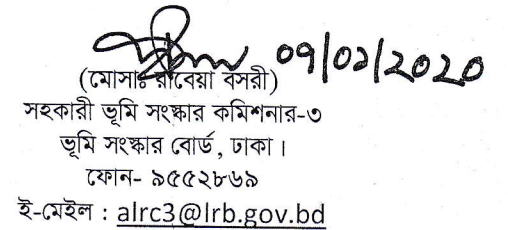 ০৭/০১/২০২০
(মোসাঃ রাবেয়া বসরী)
সহকারী ভূমি সংস্কার কমিশনার-৩
ভূমি সংস্কার বোর্ড, ঢাকা।
ফোন- ৯৫৫২৮৬৯
ই-মেইল : alrc3@lrb.gov.bd